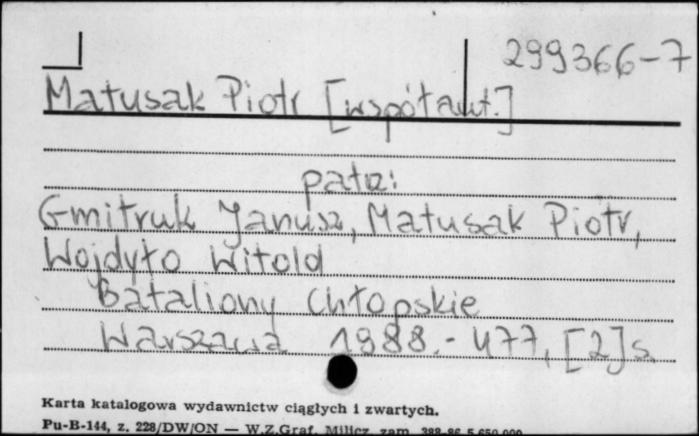 299366-7
Matusak Piotr [współaut.]
patrz:
Gmitruk Janusz, Matusak Piotr,
Wojdyło Witold
Bataliony Chłopskie
Warszawa 1988.- 477, [2] s.
Karta katalogowa wydawnictw ciągłych i zwartych.
Pu-B-144, z. 228/DW/ON — W.Z.Graf. Milicz, zam. 388-86 5.650.000